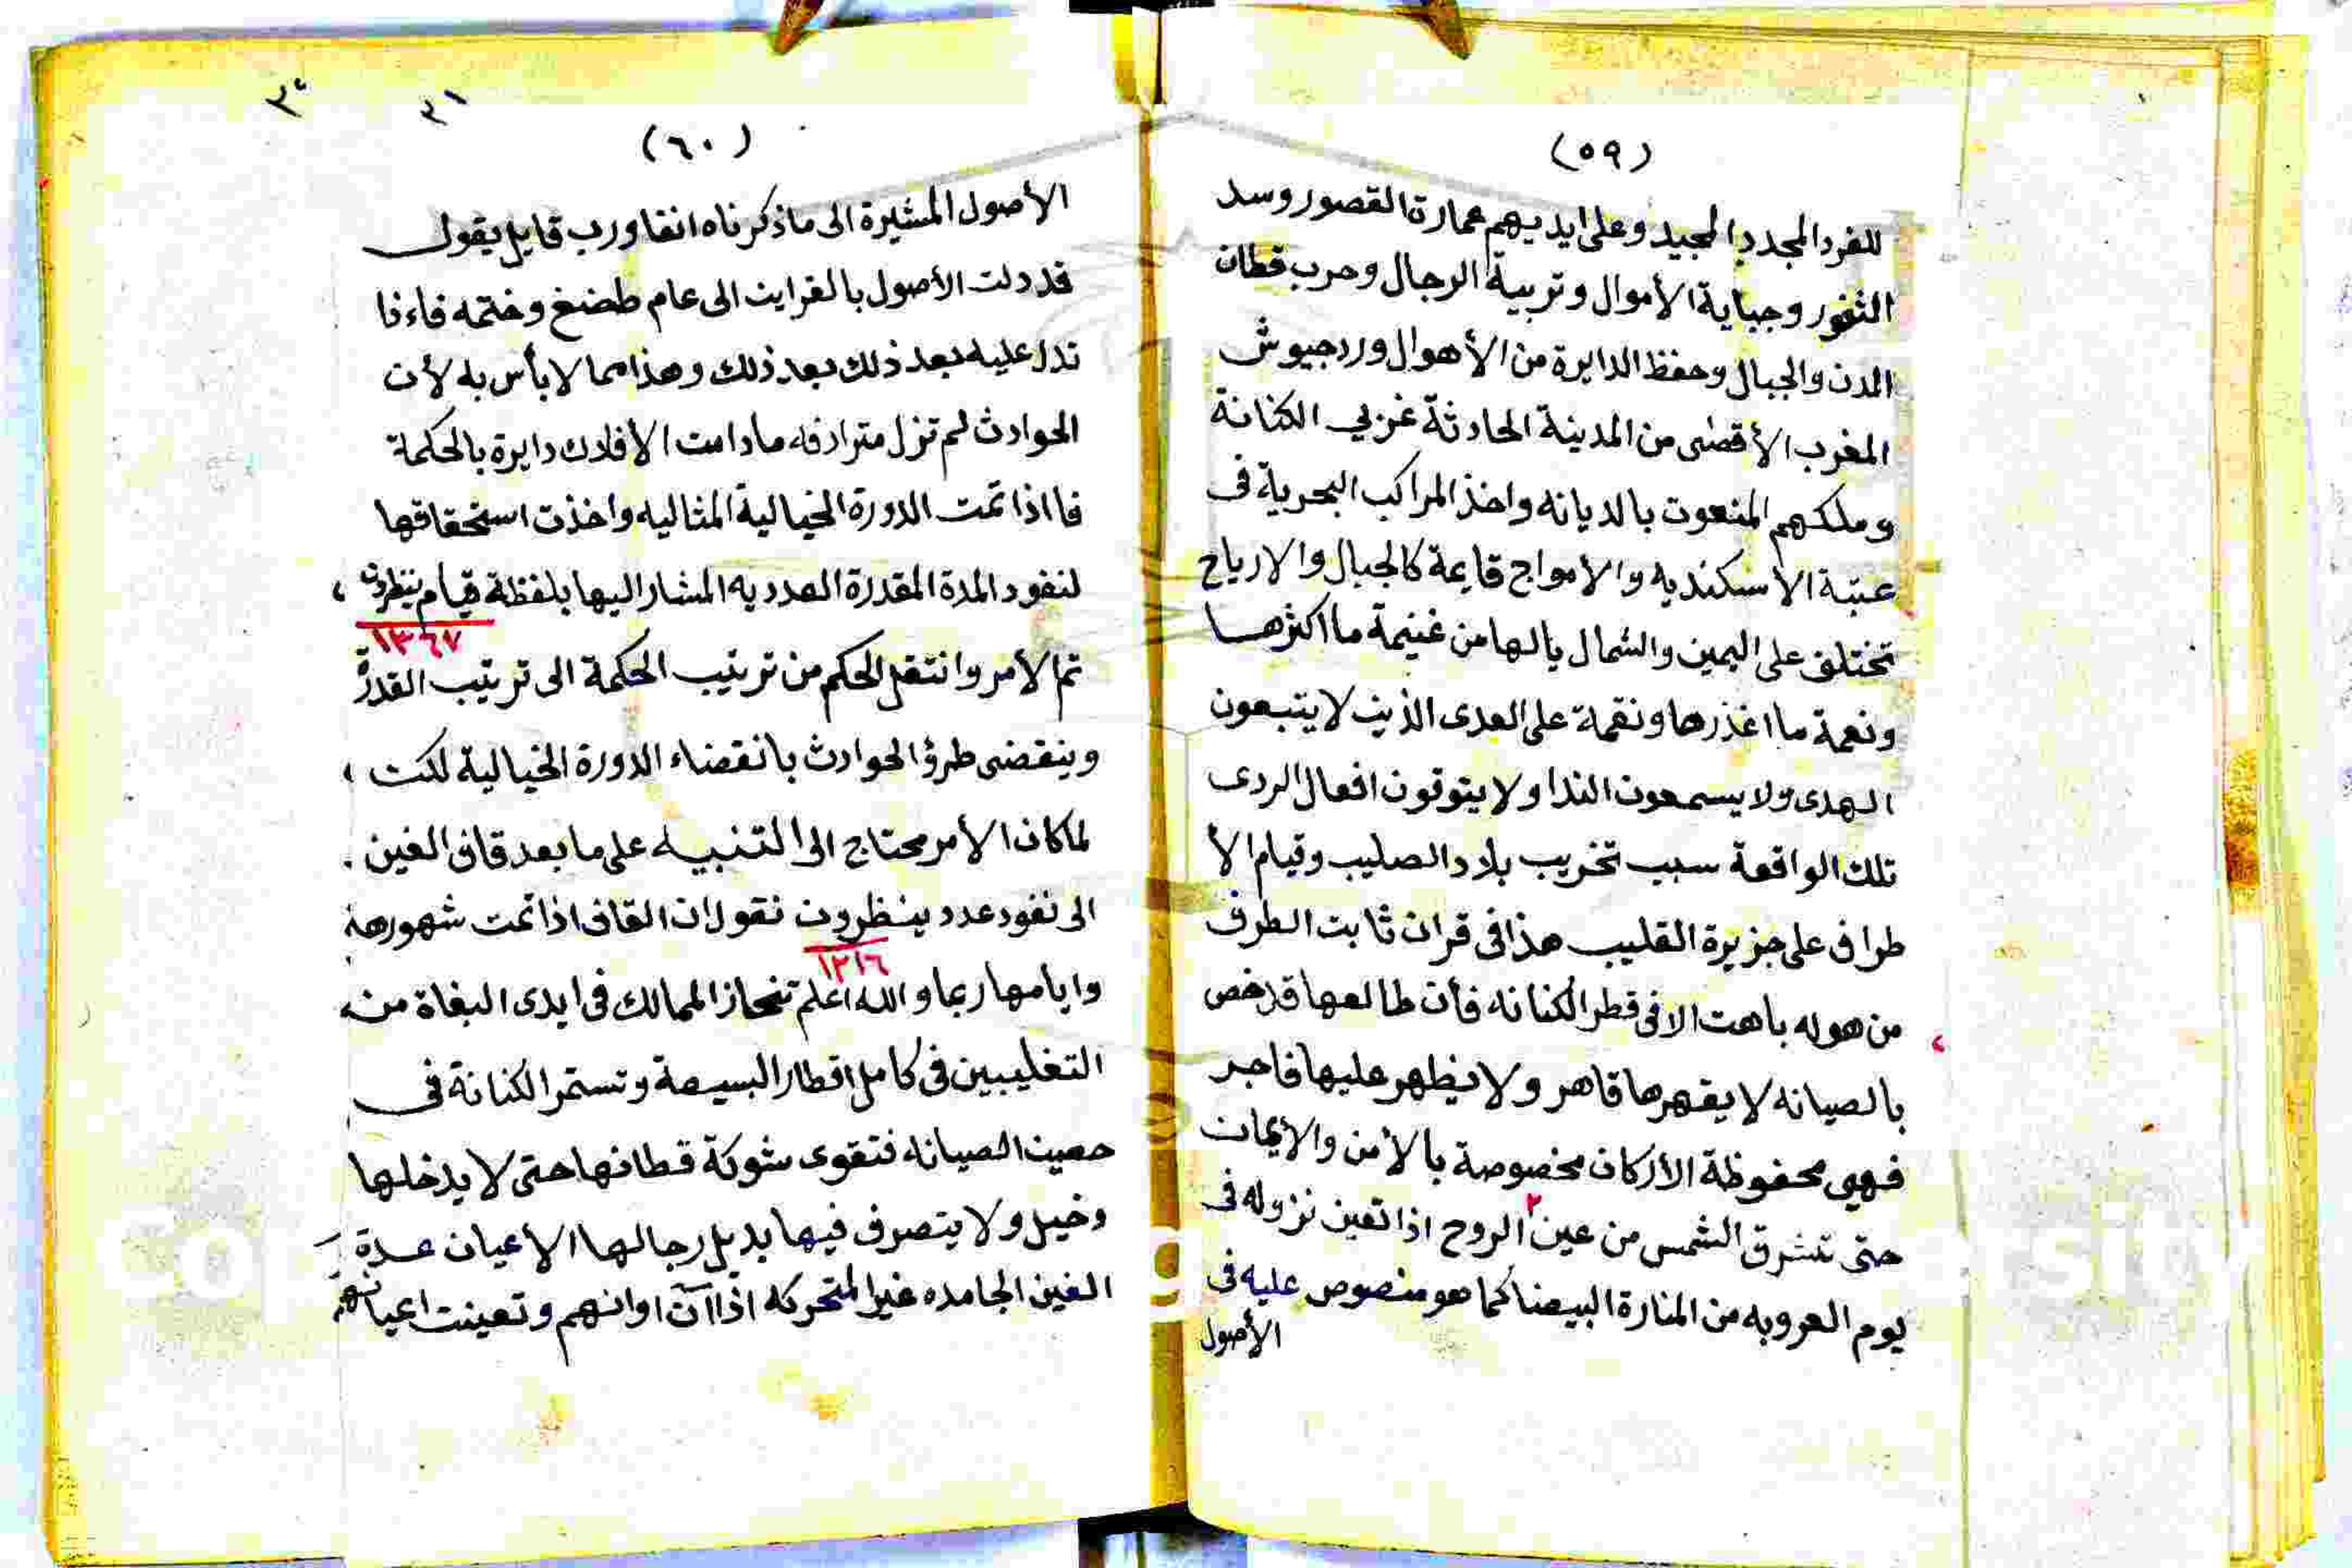 (٥٩)
للفرد المجدد المجيد وعلى ايديهم عمارة القصور وسد
الثغور وجباية الأموال وتربية الرجال وحرب قطان
المدن والجبال وحفظ الدايرة من الأهوال ورد جيوش
المغرب الأقصى من المدينة الحادثة غربي الكنانة
وملكهم المنعوت بالديانه واخذ المراكب البحرية فى
عتبة الأسكنديه والامواج قايمة كالجبال والارياح
تختلف على اليمين والشمال يالها من غنيمة ما اكثرها
ونعمة ما اغذرها ونقمة على العدى الذين لا يتبعون
الهدى ولا يسمعون الندا ولا يتوقون افعال الردى
تلك الواقعة سبب تخريب بلاد الصليب وقيام الأ
طراف على جزيرة القليب هذا فى قران ثابت الطرف
من هوله باهت الا فى قطر الكنانه فأن طالعها قد خص
بالصيانه لا يقهرها قاهر ولا يظهر عليها فاجر
فهي محفوظة الأركان مخصوصة بالأمن والأيمان
حتى تشرق الشمس من عين ٢ الروح اذا تعين نزوله فى
يوم العروبه من المنارة البيضا كما هو منصوص عليه فى
الأصول
٣٥
٣١
(٦٠)
الأصول المشيرة الى ما ذكرناه انفا ورب قايل يقول
قد دلت الأصول بالقراين الى عام طضغ وختمه فاءذا
تدل عليه بعد ذلك بعد ذلك وهذا مما لا بأس به لأن
الحوادث لم تزل مترادفه ما دامت الأفلاك دايرة بالحكمة
فااذا تمت الدورة الخيالية المثاليه واخذت استحقاقها
لنفود المدة المقدرة العدديه المشار اليها بلفظة قيام ينظرون
١٣٦٧
تم الأمر وانتقل الحكم من ترتيب الحكمة الى ترتيب القدرة
وينقضى طرؤ الحوادث بانقضاء الدورة الخيالية لكن
لما كان الأمر محتاج الى التنبيه على ما بعد قاف الغين
الى نفود عدد ينظرون نقول ان القاف اذا تمت شهورها
١٢١٦
وايامها ربما والله اعلم تنحاز الممالك فى ايدى البغاة من
التغليبين فى كامل اقطار البسيطة وتستمر الكنانة فى
حصين الصيانه فتقوى شوكة قطانها حتى لا يدخلها
دخيل ولا يتصرف فيها بديل رجالها الاعيان عدة
الغين الجامده غير المتحركه اذا آن اوانهم وتعينت اعيانهم